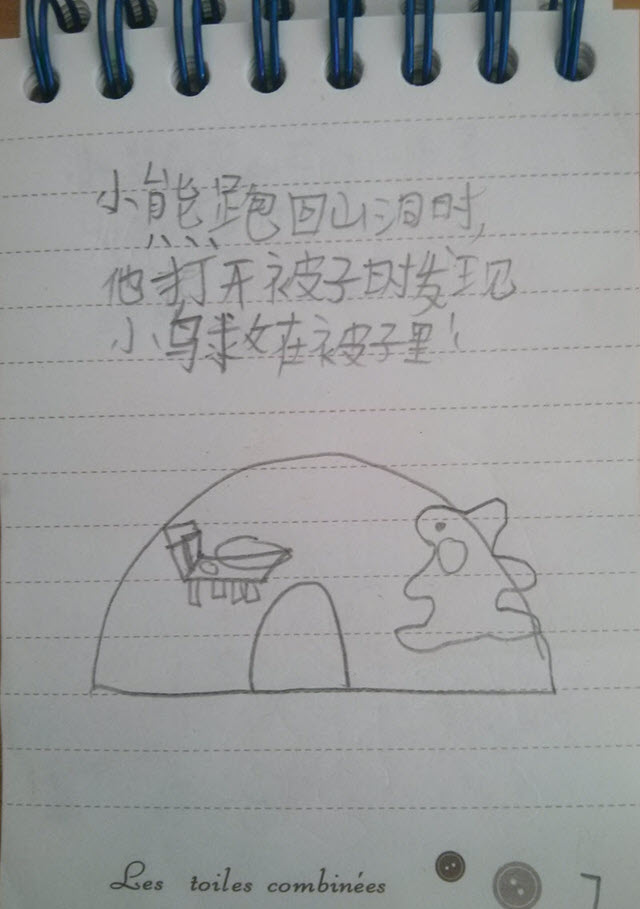 小熊跑回山洞时,
他打开被子时发现
小鸟救在被子里!
Les toiles combinées
7